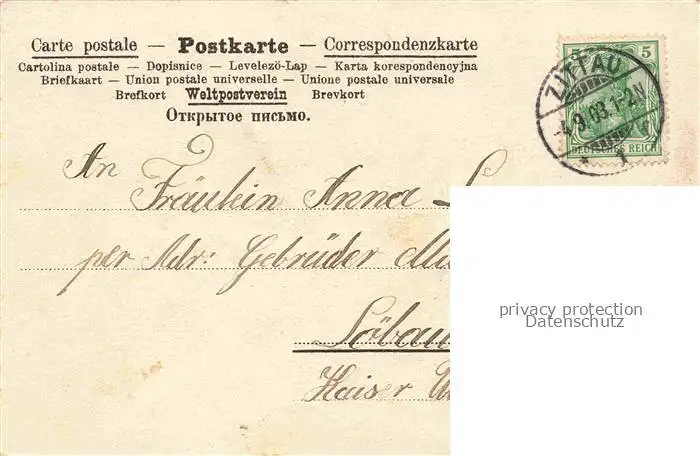 Carte postale — Postkarte — Correspondenzkarte
Cartolina postale — Dopisnice — Levelező-Lap — Karta korespondencyjna
Briefkaart — Union postale universelle — Unione postale universale
Brefkort Weltpostverein Brevkort
Открытое письмо.
5 5
ZITTAU
-4.9.03.1-2N
* 1
DEUTSCHES REICH
An
Fräulein Anna
per Adr: Gebrüder
Löbau
Kaiser
privacy protection
Datenschutz